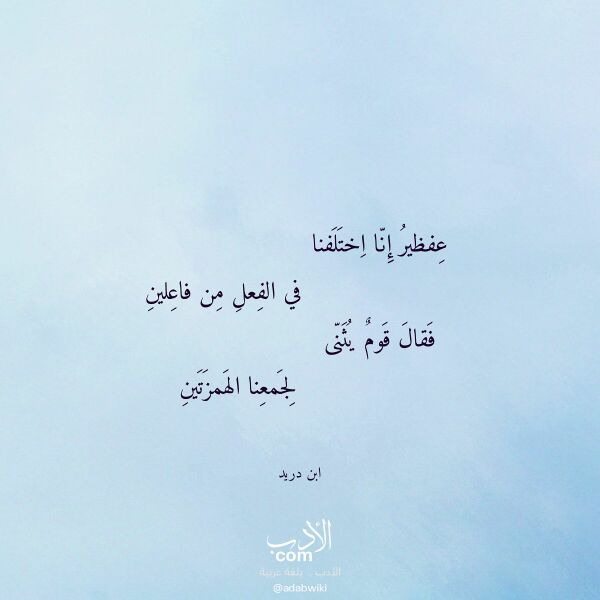 عِفظيرُ إِنّا اِختَلَفنا
في الفِعلِ مِن فاعِلينِ
فَقالَ قَومٌ يُثَنّى
لِجَمعِنا الهَمزَتَينِ
ابن دريد
الأدب
com
الأدب .. بلغة عربية
@adabwiki